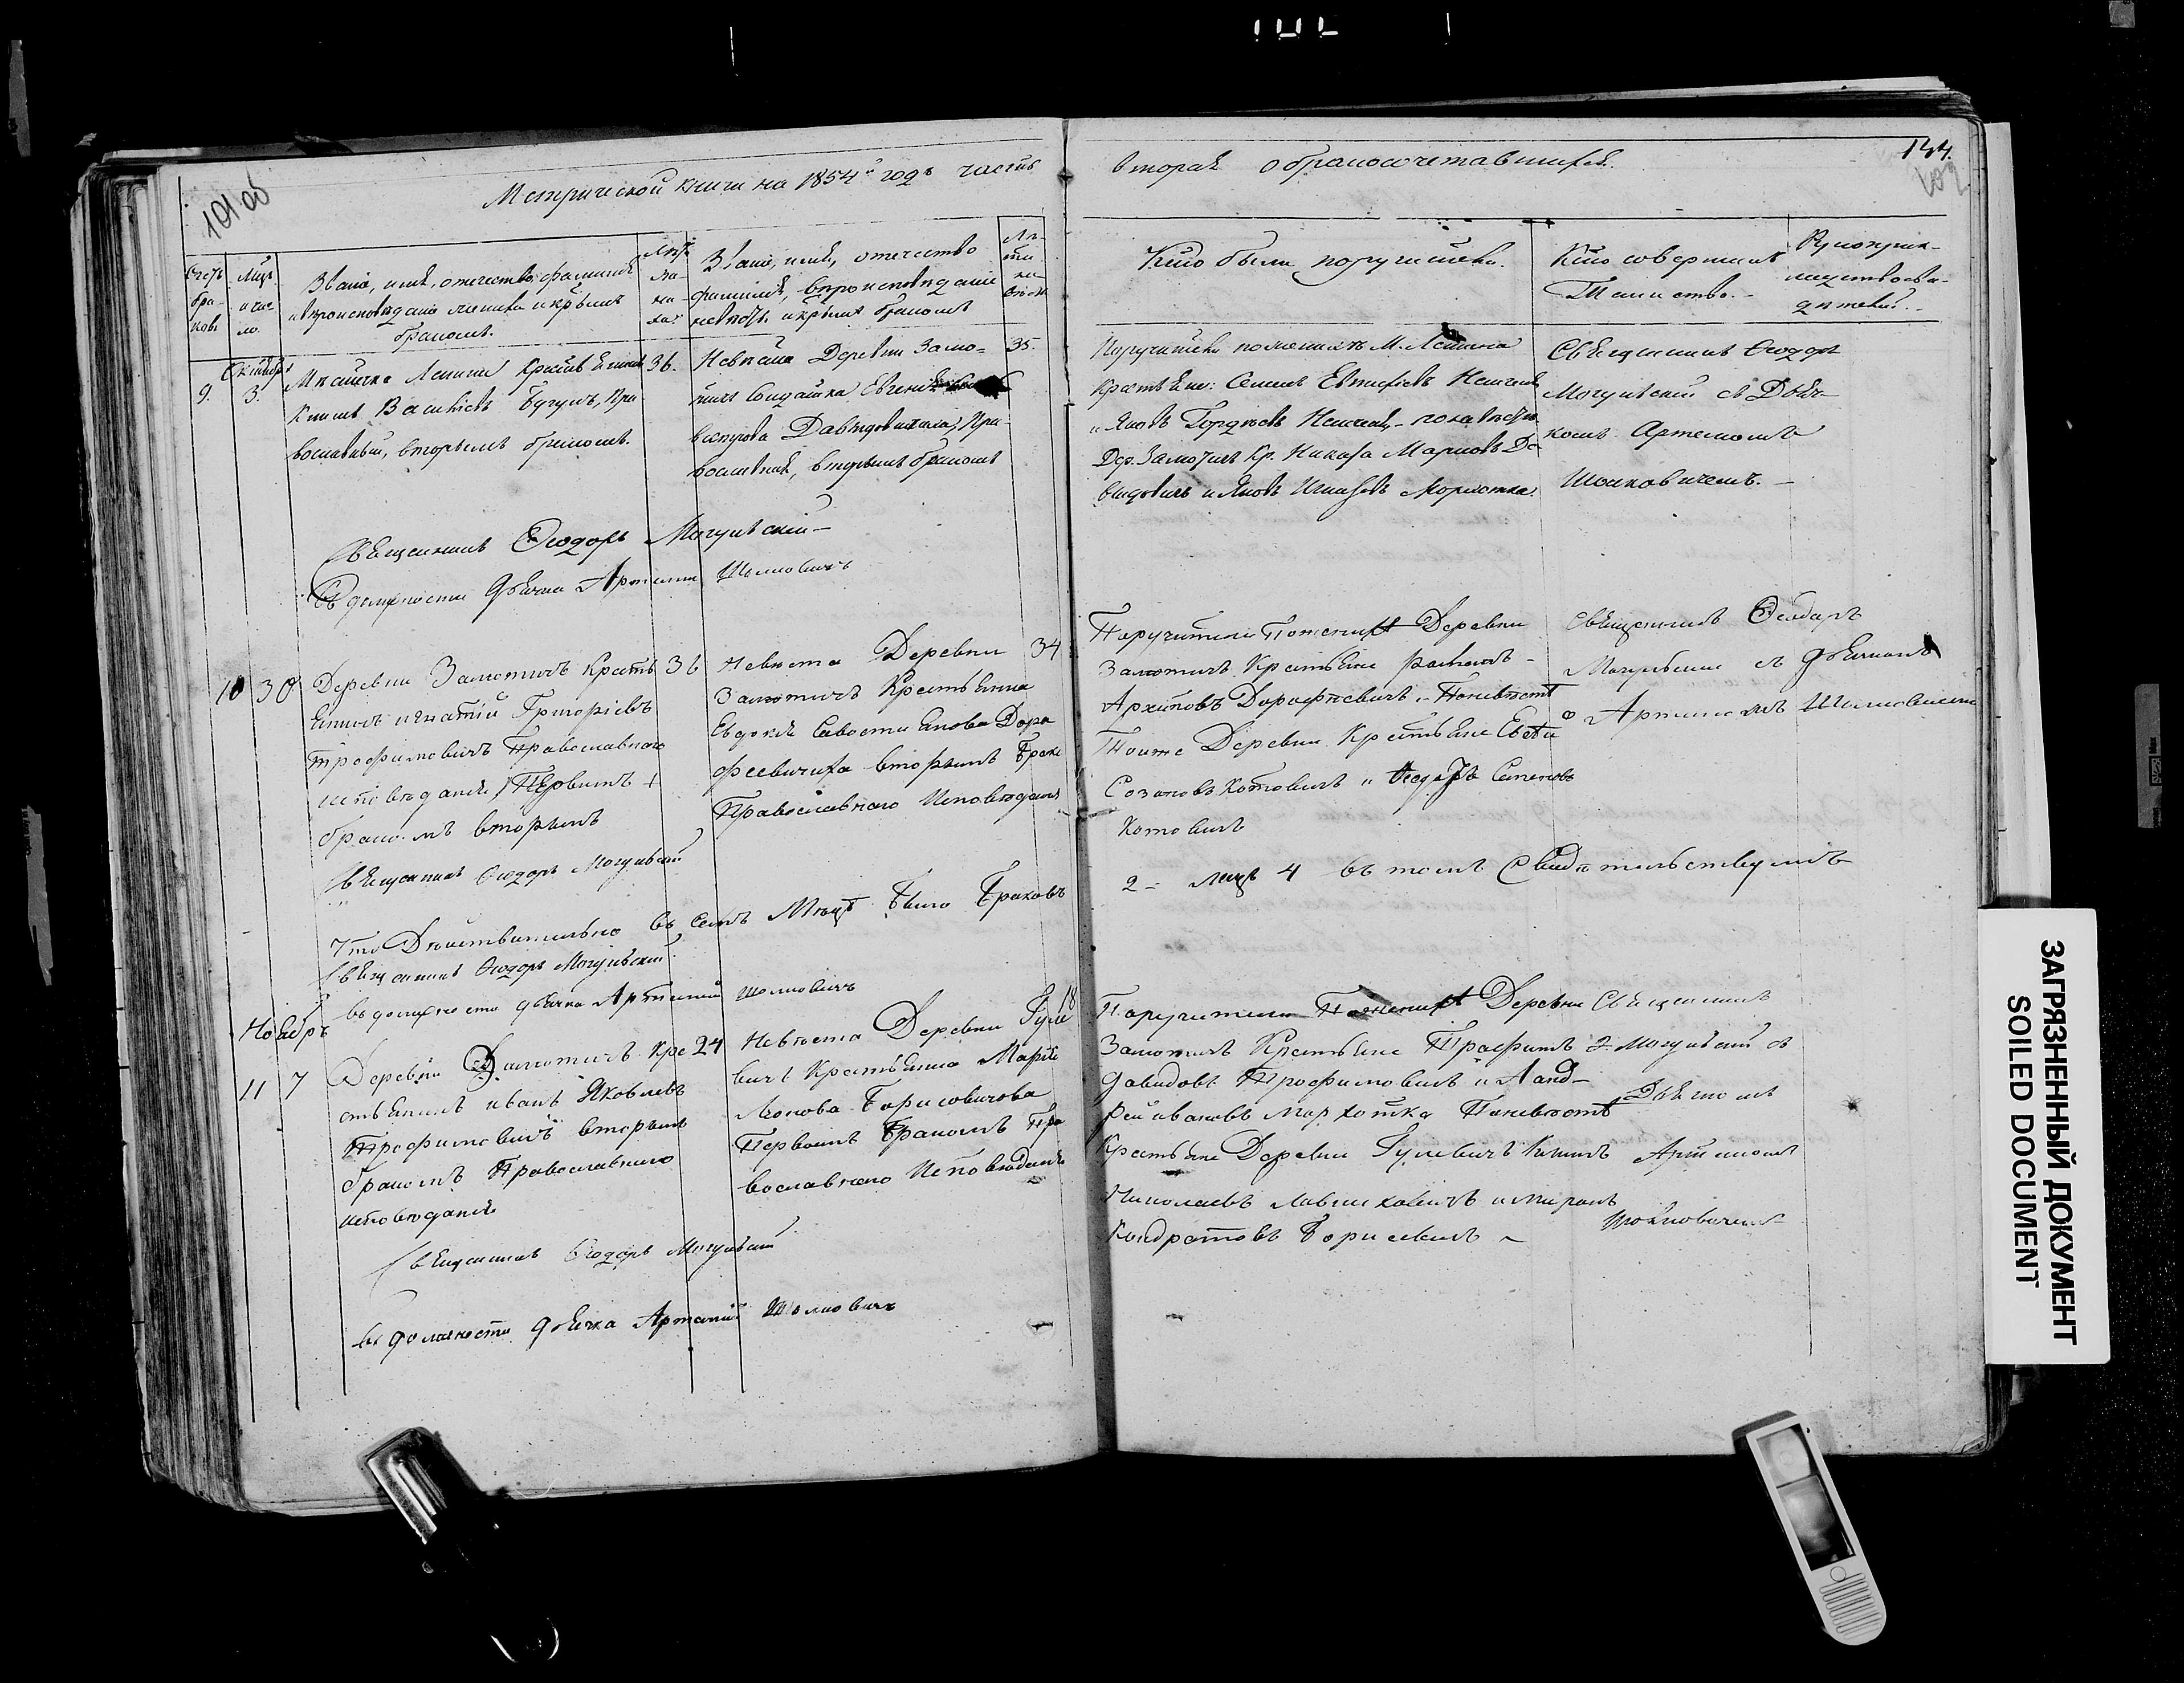 Метрической книги на 1854й годъ часть
вторая о бракосочетавшихся.
144.
101об
102
Счетъ браковъ
Мцъ и число
Званіе, имя, отчество, фамилія
и вѣроисповѣданіе жениха и которымъ
бракомъ.
Лѣта жениха
Званіе, имя, отчество
фамилія, вѣроисповѣданіе
невѣсты и которымъ бракомъ
Лѣта невѣсты
Кто были поручители.
Кто совершалъ
Таинство.
Рукоприкладство свидѣтелей.
Октябрь
9.
3.
Мѣстечка Ленина Крестьянинъ
Василіевъ Пра-
вославный, вторымъ бракомъ.
36.
Невѣста Деревни Замо-
тичъ Солдатка
Давыдовичова, Пра-
вославная, вторымъ бракомъ
35.
Поручители по женихѣ М. Ленина
Крестьяне: Семенъ
и Яковъ по невѣстѣ
Дер. Замотичъ Кр. Марковъ Да-
выдовичъ и Яковъ Мархотка.
Священникъ Ѳеодоръ
Могульскій съ Дьяч-
комъ Артемомъ
Шолковичемъ.
Священникъ Ѳеодоръ Могульскій
Въ должности Дьячка Артемій Шолковичъ
10
30
Деревни Замотичъ Кресть
янинъ игнатій Григоріевъ
трофимовичъ Православнаго
исповѣданія Первымъ
бракомъ вторымъ
36
Невѣста Деревни
Замотичъ Крестьянка
Евдокія Савостиянова Доро
феевичиха вторымъ Брако
Православнаго Исповѣданія
34
Поручители Поженихѣ Деревни
Замотичъ Крестьяне
Архиповъ Дорофѣевичъ Поневѣстѣ
Тоиже Деревни Крестьяне
Созоновъ Котовичъ и Ѳеодоръ Семеновъ
Котовичъ
Священникъ Ѳеодоръ
Могульскій съ дьячкомъ
Артемомъ Шолковичемъ
Священникъ Ѳеодоръ Могульскій
Что Дѣйствительно въ семъ Мѣцѣ Было Браковъ
2 - лицъ 4 въ томъ Свидѣтельствуемъ
Священникъ Ѳеодоръ Могульскій
въ должности дьячка Артемій Шолковичъ
Ноябрь
11
7
Деревни Замотичъ Кре
стьянинъ иванъ Яковлевъ
Трофимовичъ вторымъ
бракомъ Православнаго
исповѣданія
24
Невѣста Деревни Гуле
вичъ Крестьянка Марія
Леонова Борисовичова
Первымъ Бракомъ Пра
вославнаго Исповѣданія
18
Поручители Поженихѣ Деревни
Замотичъ Крестьяне Трофимъ
Давидовъ Трофимовичъ и Анд-
рей ивановъ Мархотка Поневѣстѣ
Крестьяне Деревни Гулевичъ
Николаевъ и миронъ
Кондратовъ Борисевичъ
Священникъ
Ѳ. Могульскій съ
Дьячкомъ
Артемомъ
Шолковичемъ
Священникъ Ѳеодоръ Могульскій
въ должности дьячка Артемій Шолковичъ
ЗАГРЯЗНЕННЫЙ ДОКУМЕНТ
SOILED DOCUMENT